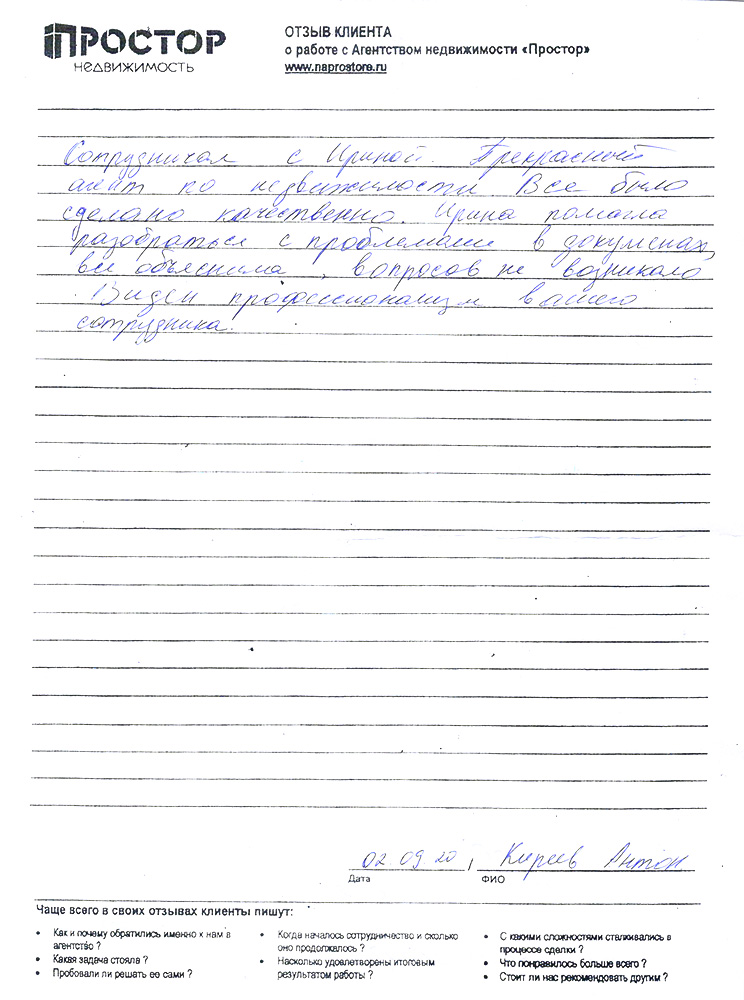 ПРОСТОР
НЕДВИЖИМОСТЬ
ОТЗЫВ КЛИЕНТА
о работе с Агентством недвижимости «Простор»
www.naprostore.ru
Сотрудничал с Ириной. Прекрасный
агент по недвижимости. Все было
сделано качественно. Ирина помогла
разобраться с проблемами в докуменах,
все объяснила, вопросов не возникало
. Виден профессионализм вашего
сотрудника.
02.09.20, Киреев Антон
Дата ФИО
Чаще всего в своих отзывах клиенты пишут:
• Как и почему обратились именно к нам в
агентство ?
• Какая задача стояла ?
• Пробовали ли решать ее сами ?
• Когда началось сотрудничество и сколько
оно продолжалось ?
• Насколько удовлетворены итоговым
результатом работы ?
• С какими сложностями сталкивались в
процессе сделки ?
• Что понравилось больше всего ?
• Стоит ли нас рекомендовать другим ?